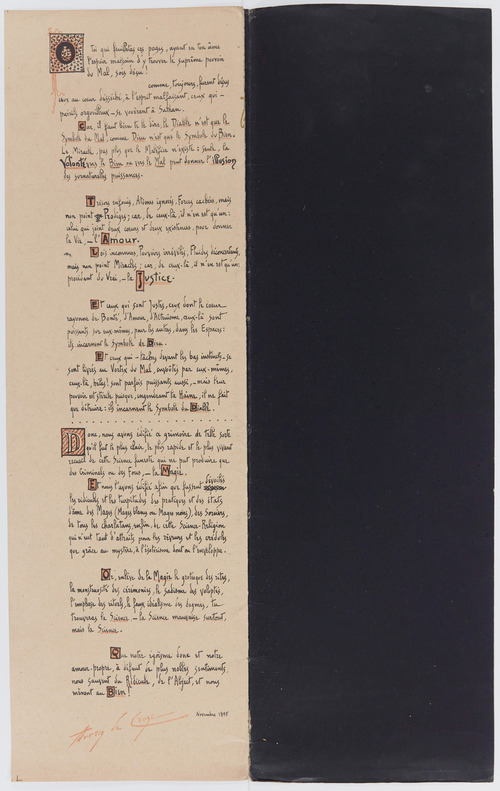 O toi qui feuillètes ces pages, ayant en ton âme
l'espoir malsain d'y trouver le suprême pouvoir
du Mal, sois déçu!
comme, toujours, furent déçus
ceux au cœur desséché, à l'esprit malfaisant, ceux qui –
puérils orgueilleux – se vouèrent à Sathan.
Car, il faut bien te le dire, le Diable n'est que le
Symbole du Mal, comme Dieu n'est que le Symbole du Bien.
Le Miracle, pas plus que le Maléfice n'existe: seule, la
Volonté vers le Bien ou vers le Mal peut donner l'Illusion
des surnaturelles puissances.
Trésors enfouis, Atomes ignorés, Forces cachées, mais
non point Prodiges; car, de ceux-là, il n'en est qu'un:
celui qui joint deux cœurs et deux existences, pour donner
la Vie, – l'Amour.
Lois inconnues, Pouvoirs irrévélés, Fluides déconcertants,
mais non point Miracles; car, de ceux-là, il n'en est qu'un:
procédant du Vrai, – la Justice.
Et ceux qui sont Justes, ceux dont le cœur
rayonne de Bonté, d'Amour, d'Altruisme, ceux-là sont
puissants sur eux-mêmes, pour les autres, dans les Espaces:
ils incarnent le Symbole de Dieu.
Et ceux qui – lâches devant les bas instincts – se
sont livrés au Vertex du Mal, envoûtés par eux-mêmes,
ceux-là, hélas! sont parfois puissants aussi, – mais leur
pouvoir est stérile puisque, engendrant la Haine, il ne fait
que détruire: ils incarnent le Symbole du Diable.
Donc, nous avons édifié ce grimoire de telle sorte
qu'il fut le plus clair, le plus rapide et le plus vivant
recueil de cette Science funeste qui ne peut produire que
des Criminels ou des Fous, – la Magie.
Et nous l'avons édifié afin que fussent dévoilés
les ridicules et les turpitudes des pratiques et des états
d'âme des Mages (Mages blancs ou Mages noirs), des Sorciers,
de tous les charlatans, enfin, de cette Science-Religion
qui n'eut tant d'attraits pour les rêveurs et les crédules
que grâce au mystère, à l'ésotérisme dont on l'enveloppa.
Or, enlève de la Magie le grotesque des rites,
la monstruosité des cérémonies, le sadisme des voluptés,
l'emphase des rituels, le faux idéalisme des dogmes, tu
trouveras la Science, – la Science mauvaise surtout,
mais la Science.
Que notre égoïsme donc et notre
amour-propre, à défaut de plus nobles sentiments,
nous sauvent du Ridicule, de l'Abject, et nous
mènent au Bien!
Novembre 1895